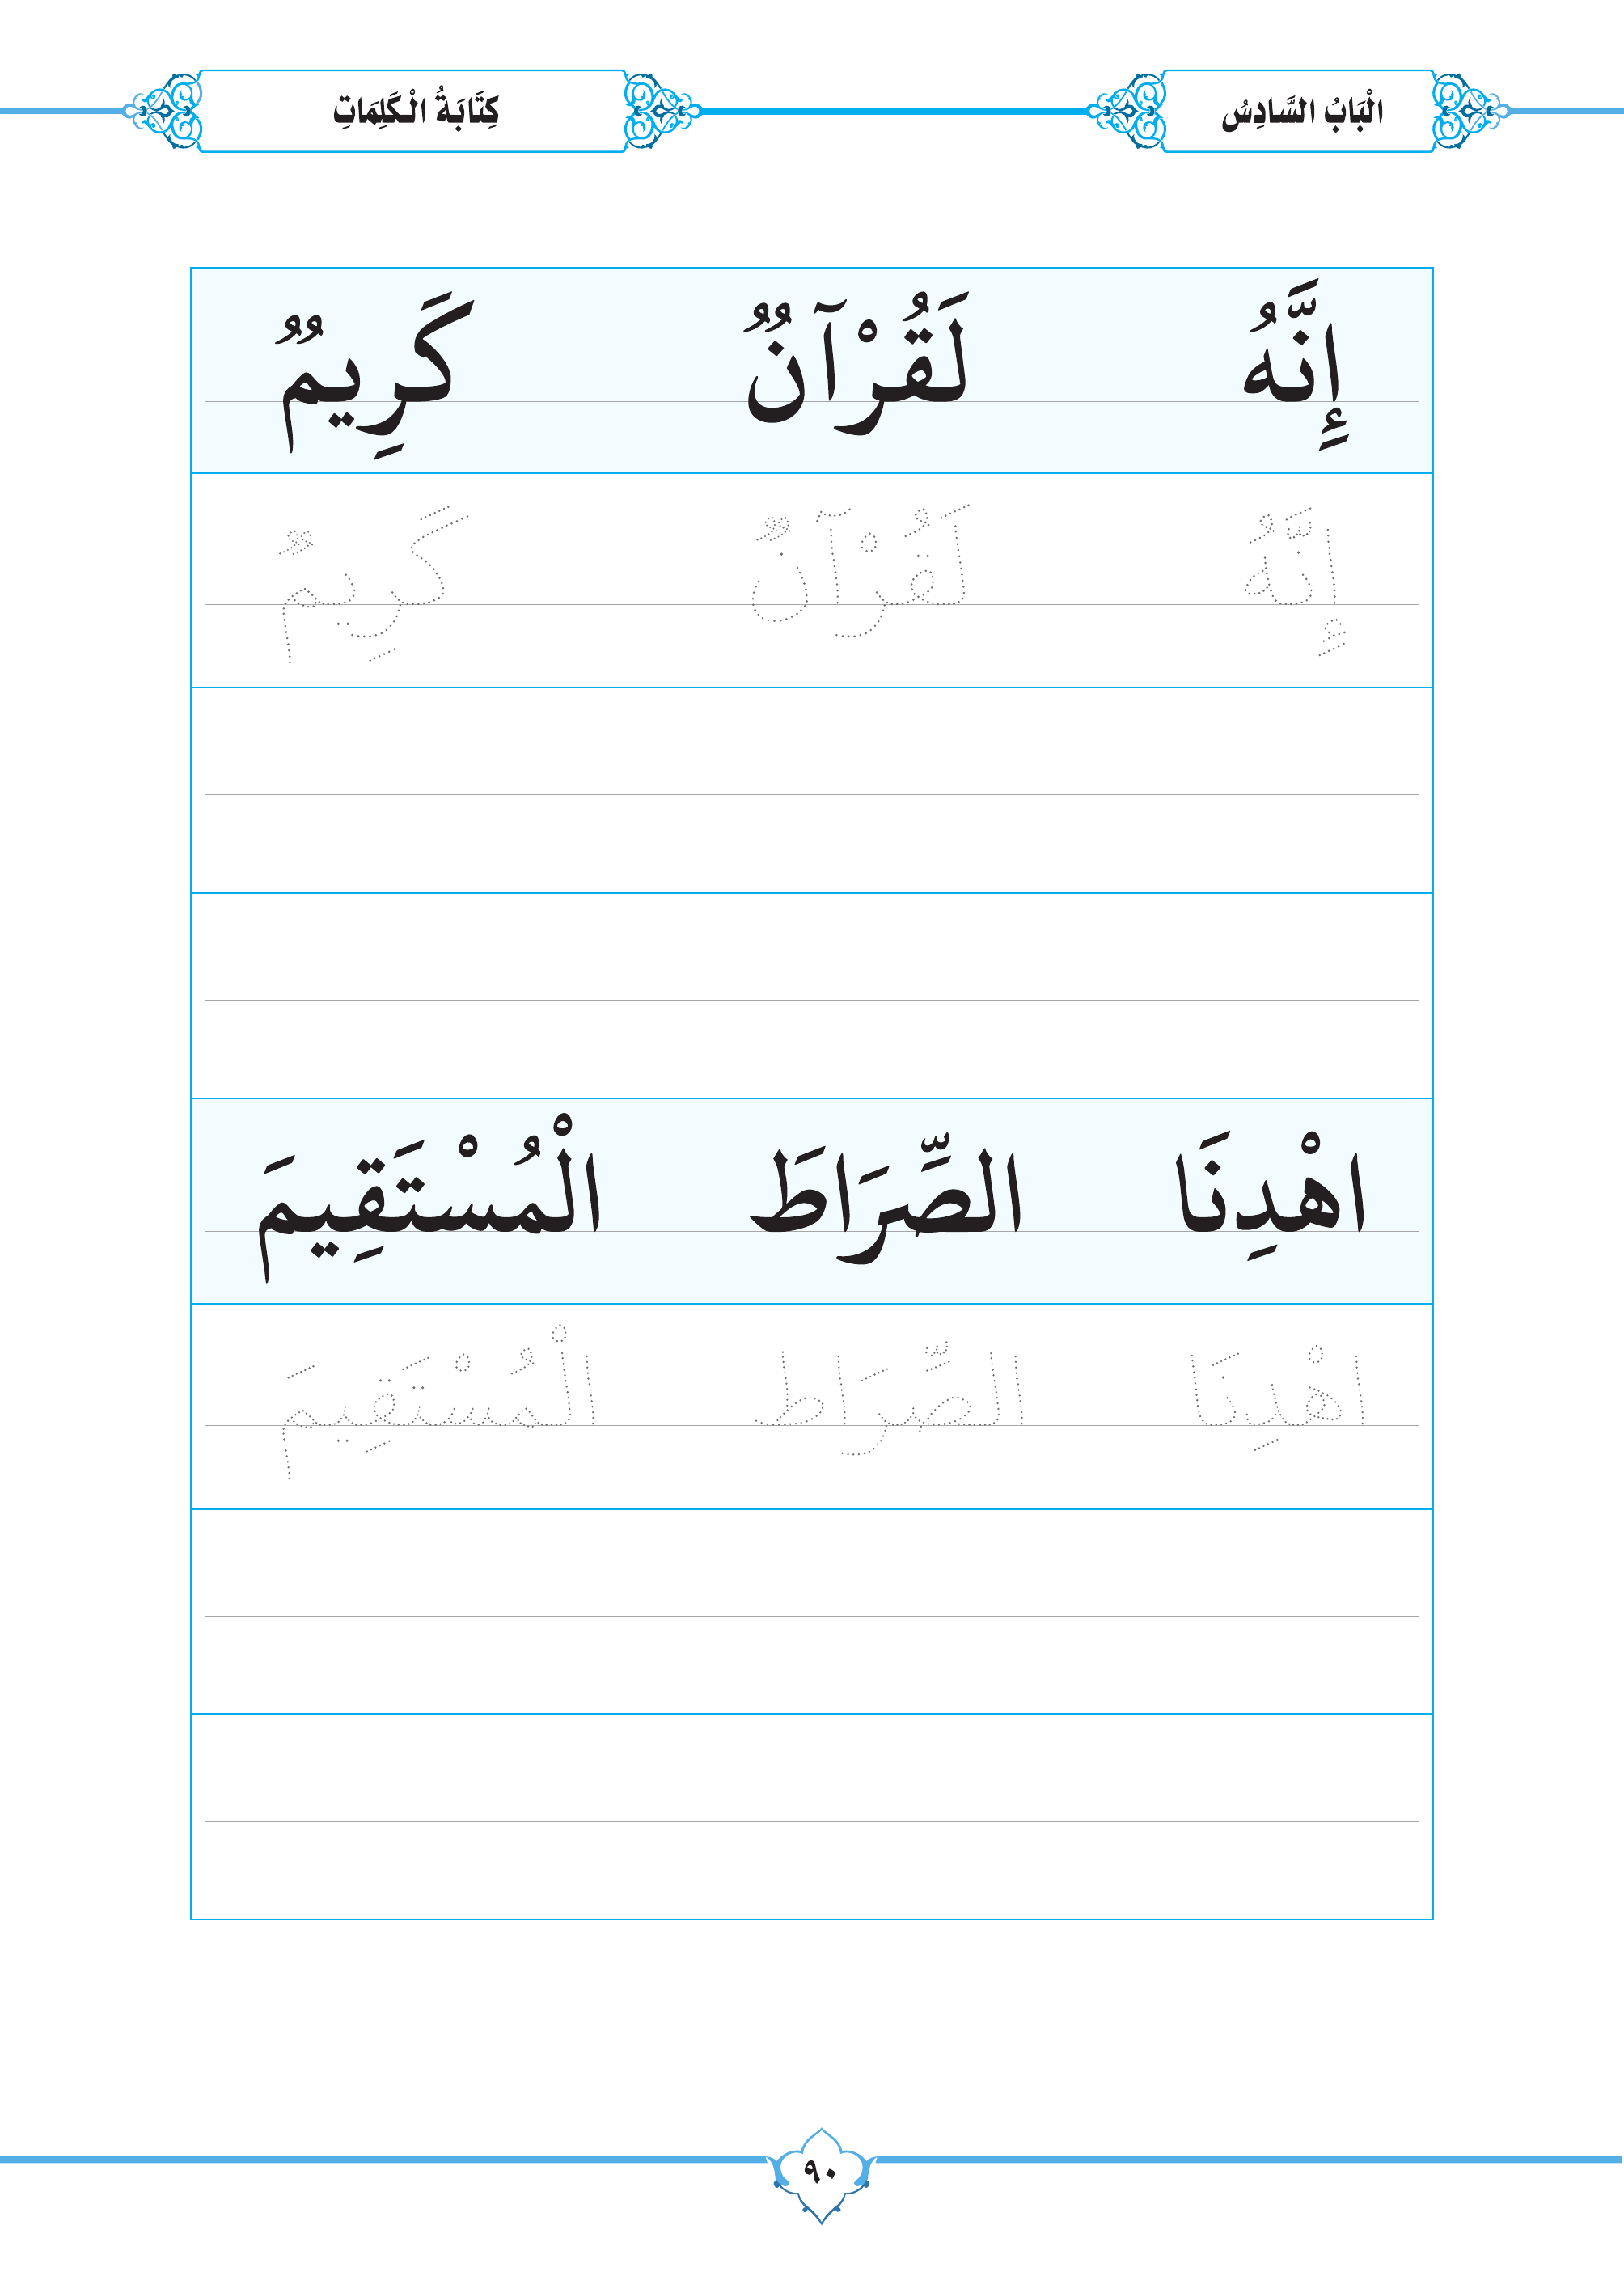 الْبَابُ السَّادِسُ
كِتَابَةُ الْكَلِمَاتِ
إِنَّهُ لَقُرْآنٌ كَرِيمٌ
إِنَّهُ لَقُرْآنٌ كَرِيمٌ
اهْدِنَا الصِّرَاطَ الْمُسْتَقِيمَ
اهْدِنَا الصِّرَاطَ الْمُسْتَقِيمَ
٩٠